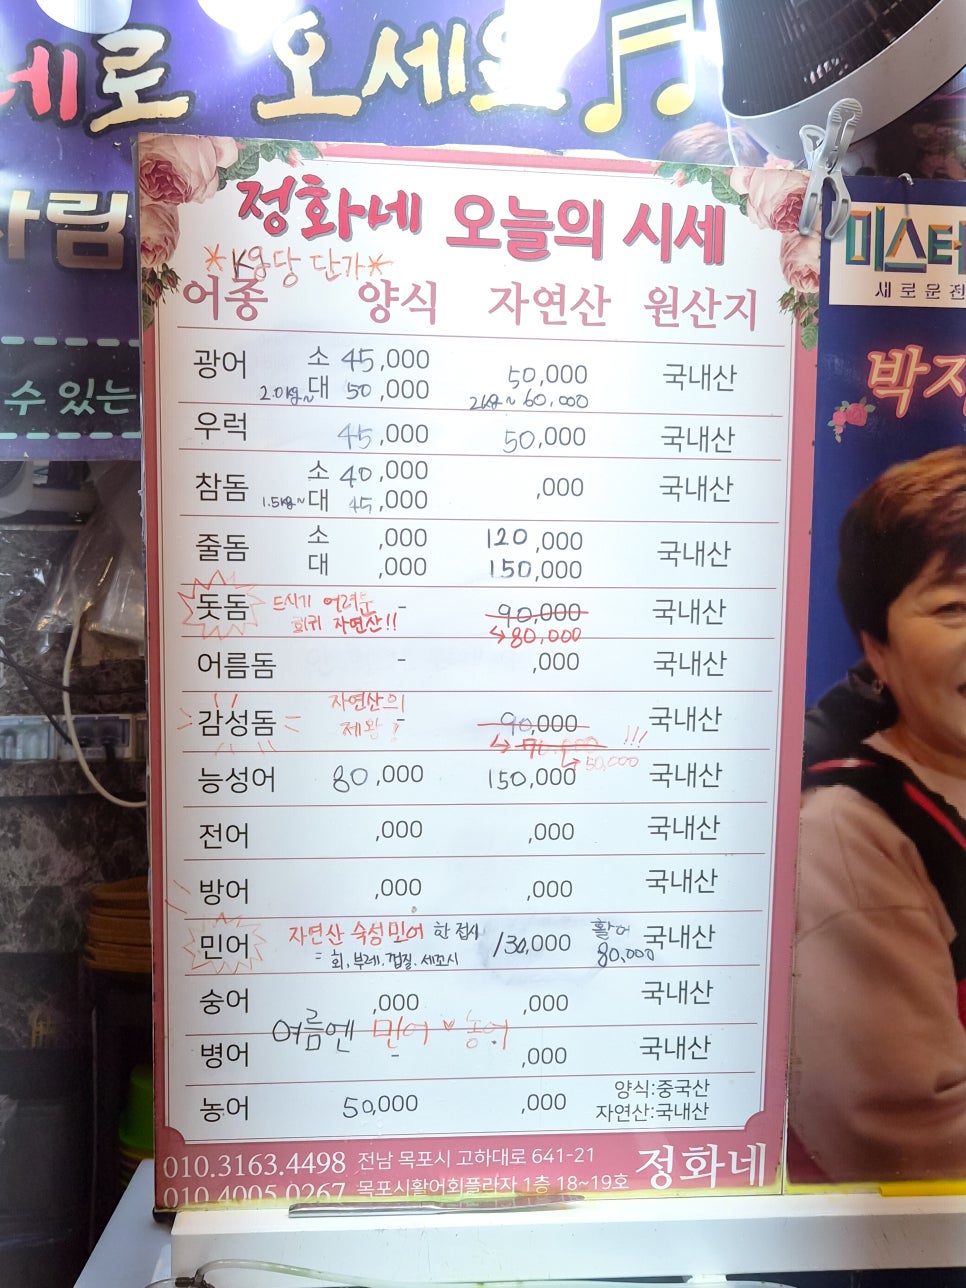 네로 오세요
사림
수 있는
미스터
새로운 진
박지
정화네 오늘의 시세
*kg당 단가*
어종 양식 자연산 원산지
광어 소 45,000 50,000 국내산
2.0kg~대 50,000 2kg~60,000
우럭 45,000 50,000 국내산
참돔 소 40,000 ,000 국내산
1.5kg~대 45,000
줄돔 소 ,000 120,000 국내산
대 ,000 150,000
돗돔 드시기 어려운 - 90,000 국내산
희귀 자연산!! →80,000
어름돔 - ,000 국내산
감성돔 자연산의 - 90,000 국내산
제왕! →70,000 !!!
→50,000
능성어 80,000 150,000 국내산
전어 ,000 ,000 국내산
방어 ,000 ,000 국내산
민어 자연산 숙성민어 한접시 130,000 활어 국내산
= 회,부레,껍질,세꼬시 80,000
숭어 ,000 ,000 국내산
여름엔 민어♥농어
병어 - ,000 국내산
농어 50,000 ,000 양식:중국산
자연산:국내산
010.3163.4498 전남 목포시 고하대로 641-21
010.4005.0267 목포시활어회플라자 1층 18~19호 정화네